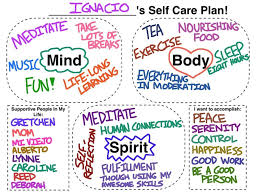 IGNACIO 's Self Care Plan!
MEDITATE
TAKE
LOTS OF
BREAKS
MUSIC
Mind
FUN!
LIFE LONG
LEARNING
TEA
NOURISHING
FOOD
EXERCISE
Body
SLEEP
EIGHT HOURS
EVERYTHING
IN MODERATION
Supportive People in My
Life:
GRETCHEN
MOM
MI VIEJO
ALBERTO
LYNNE
CAROLINE
REED
DEBORAH
MEDITATE
HUMAN CONNECTIONS
SELF-
REFLECTION
Spirit
FULFILLMENT
THOUGH USING MY
AWESOME SKILLS
I want to accomplish:
PEACE
SERENITY
CONTROL
HAPPINESS
GOOD WORK
BE A GOOD
PERSON